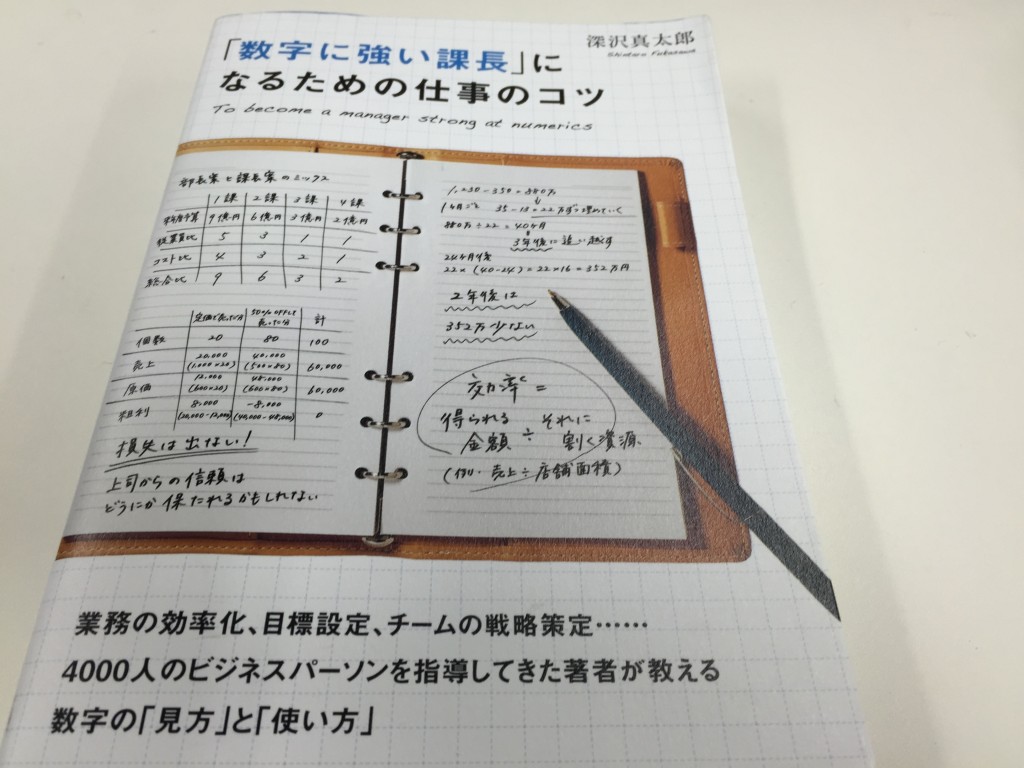 「数字に強い課長」に
なるための仕事のコツ
To become a manager strong at numerics
深沢真太郎
Shintaro Fukasawa
部長案と課長案のミックス
1課 2課 3課 4課
9億円 6億円 3億円 2億円
従業員比 5 3 1 1
コスト比 4 3 2 1
総合比 9 6 3 2
定価で売った分 50%OFFして売った分 計
個数 20 80 100
売上 20,000 (1,000×20) 40,000 (500×80) 60,000
原価 12,000 (600×20) 48,000 (600×80) 60,000
粗利 8,000 (20,000-12,000) -8,000 (40,000-48,000) 0
損失は出ない!
上司からの信頼は
どうにか保たれるかもしれない
1,230-350=880万
1ヶ月ごと 35-13=22万ずつ埋めていく
880万÷22=40ヶ月
3年後に追い越す
24ヶ月後
22×(40-24)=22×16=352万円
2年後は
352万少ない
効率=
得られる金額÷それに割く資源
(例・売上÷店舗面積)
業務の効率化、目標設定、チームの戦略策定……
4000人のビジネスパーソンを指導してきた著者が教える
数字の「見方」と「使い方」